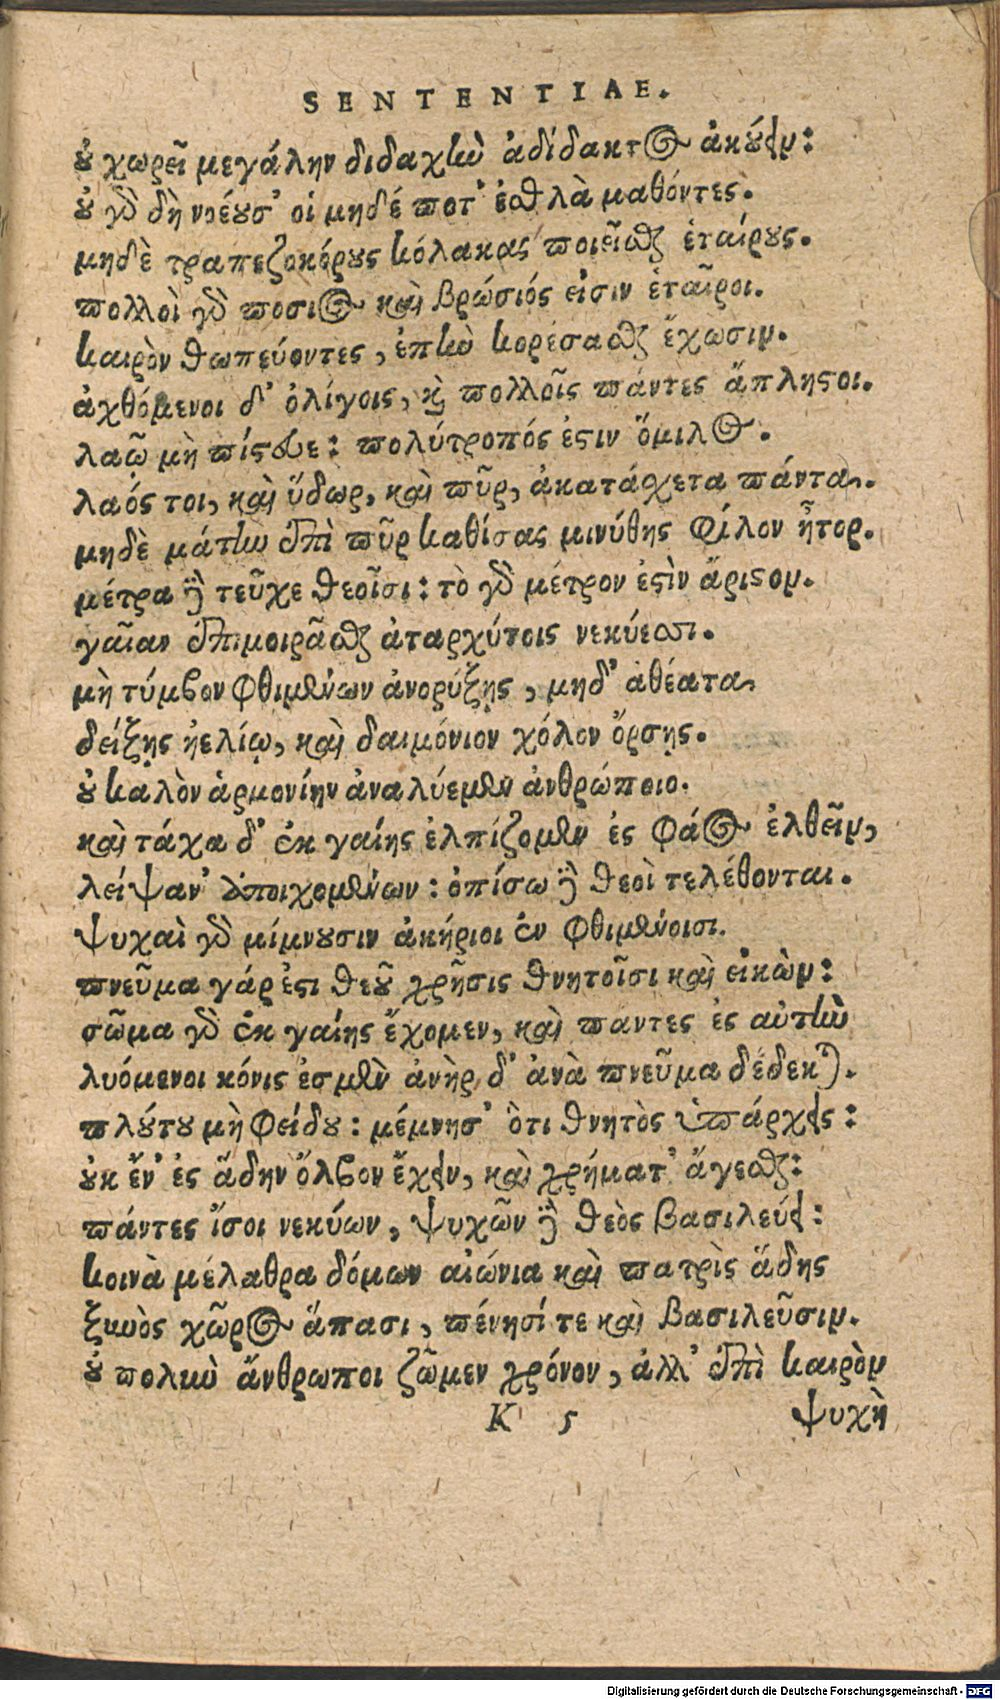 SENTENTIAE.
οὐ χωρεῖ μεγάλην διδαχὴν ἀδίδακτος ἀκούειν:
οὐ γὰρ δὴ νοέουσ' οἱ μηδέ ποτ' ἐσθλὰ μαθόντες.
μηδὲ τραπεζοκόρους κόλακας ποιεῖσθαι ἑταίρους.
πολλοὶ γὰρ ποσιος καὶ βρώσιός εἰσιν ἑταῖροι.
καιρὸν θωπεύοντες, ἐπὴν κορέσασθαι ἔχωσιν.
ἀχθόμενοι δ' ὀλίγοις, καὶ πολλοῖς πάντες ἄπληστοι.
λαῷ μὴ πίστευε: πολύτροπός ἐστιν ὅμιλος.
λαός τοι, καὶ ὕδωρ, καὶ πῦρ, ἀκατάσχετα πάντα.
μηδὲ μάτην ἐπὶ πῦρ καθίσας μινύθης φίλον ἦτορ.
μέτρα δὲ τεῦχε θεοῖσι: τὸ γὰρ μέτρον ἐστὶν ἄριστον.
γαῖαν ἐπιμοιρᾶσθαι ἀταρχύτοις νεκύεσσι.
μὴ τύμβον φθιμένων ἀνορύξῃς, μηδ' ἀθέατα
δείξῃς ἠελίῳ, καὶ δαιμόνιον χόλον ὄρσῃς.
οὐ καλὸν ἁρμονίην ἀναλύεμεν ἀνθρώποιο.
καὶ τάχα δ' ἐκ γαίης ἐλπίζομεν ἐς φάος ἐλθεῖν,
λείψαν' ἀποιχομένων: ὀπίσω δὲ θεοὶ τελέθονται.
ψυχαὶ γὰρ μίμνουσιν ἀκήριοι ἐν φθιμένοισι.
πνεῦμα γάρ ἐστι θεοῦ χρῆσις θνητοῖσι καὶ εἰκὼν:
σῶμα γὰρ ἐκ γαίης ἔχομεν, καὶ παντες ἐς αὐτὴν
λυόμενοι κόνις ἐσμὲν ἀνὴρ δ' ἀνὰ πνεῦμα δέδεκται.
πλούτου μὴ φείδου: μέμνησ' ὅτι θνητὸς ὑπάρχεις:
οὐκ ἔν' ἐς ᾅδην ὄλβον ἔχειν, καὶ χρήματ' ἄγεσθαι:
πάντες ἴσοι νεκύων, ψυχῶν δὲ θεὸς βασιλεύει:
κοινὰ μέλαθρα δόμων αἰώνια καὶ πατρὶς ᾅδης
ξυνὸς χῶρος ἅπασι, πένησί τε καὶ βασιλεῦσιν.
οὐ πολὺν ἄνθρωποι ζῶμεν χρόνον, ἀλλ' ἐπὶ καιρὸν
K 5 ψυχὴ
Digitalisierung gefördert durch die Deutsche Forschungsgemeinschaft - DFG